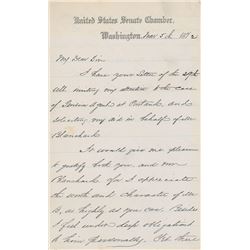 United States Senate Chamber.
Washington, Mar 5th 1872
My Dear Sir
I have your letter of the 29th
ult. inviting my attention to the case
of Pension Agent at Portland, and
soliciting my aid in behalf of Mr
Blanchard.
It would give me pleasure
to gratify both you and Mr
Blanchard for I appreciate
the worth and character of Mr
B, as highly as you can. Besides
I feel under deep obligations
to him personally. But there